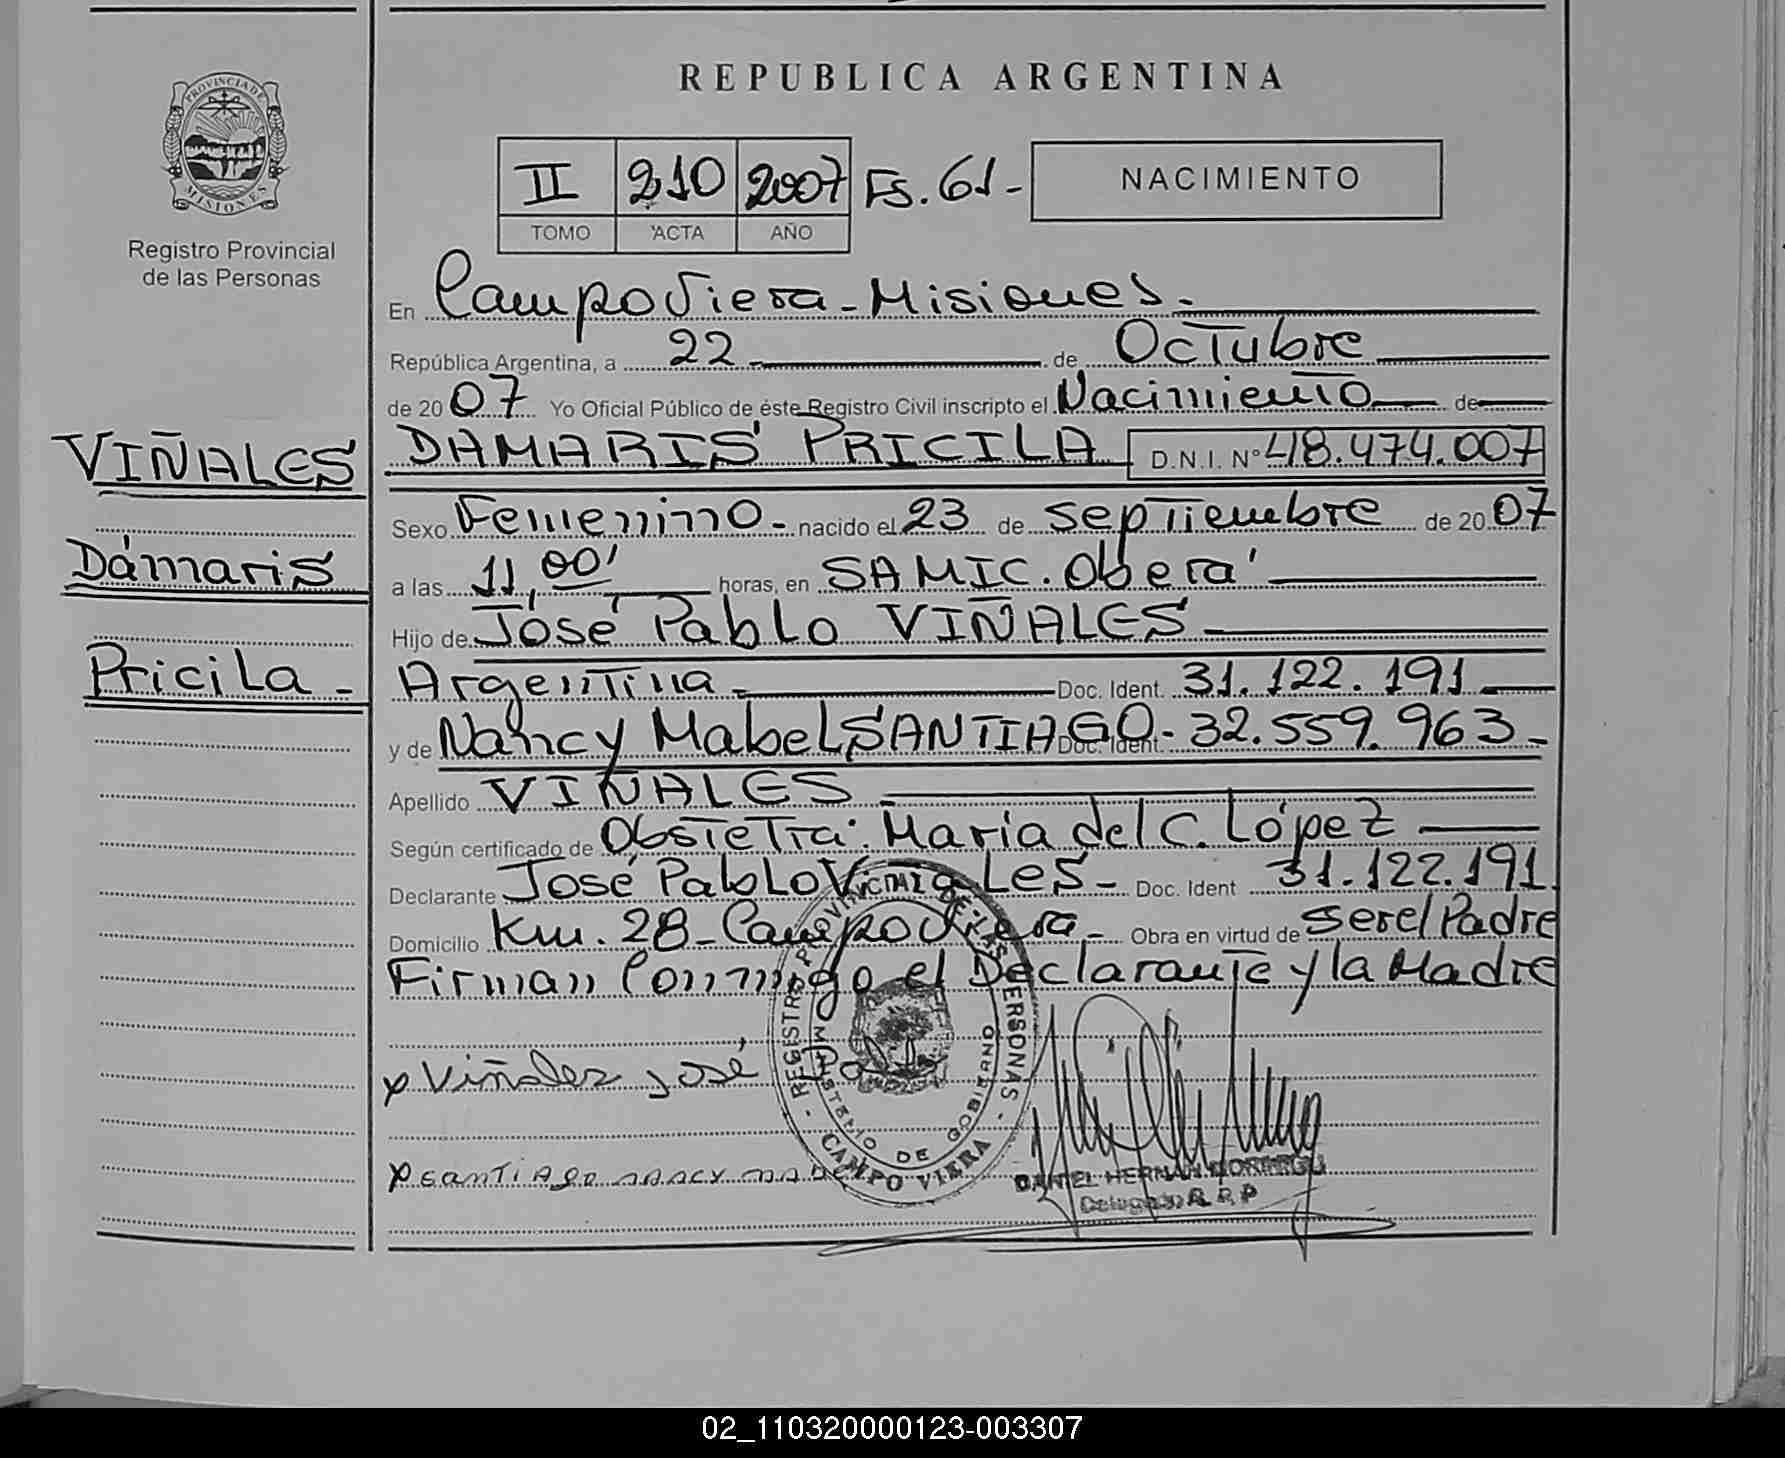 REPUBLICA ARGENTINA
PROVINCIA DE MISIONES
Registro Provincial
de las Personas
II 210 2007 Fs. 61-
TOMO ACTA AÑO
NACIMIENTO
En Campo Viera - Misiones.
República Argentina, a 22 de Octubre
de 2007 Yo Oficial Público de éste Registro Civil inscripto el Nacimiento de
DAMARIS PRICILA D.N.I. Nº 48.474.007
VIÑALES
Dámaris
Pricila -
Sexo Femenino - nacido el 23 de Septiembre de 2007
a las 11,00' horas, en SAMIC. Oberá
Hijo de José Pablo VIÑALES -
Argentina - Doc. Ident. 31.122.191
y de Nancy Mabel SANTIAGO - Doc. Ident. 32.559.963 -
Apellido VIÑALES
Según certificado de Obstetra: María del C. López
Declarante José Pablo Viñales - Doc. Ident 31.122.191
Domicilio Km. 28 - Campo Viera - Obra en virtud de ser el Padre
Firman Conmigo el Declarante y la Madre
x Viñales José Pablo
x SANTIAGO NANCY
REGISTRO PROVINCIAL DE LAS PERSONAS
MINISTERIO DE GOBIERNO
CAMPO VIERA
DANIEL HERNAN
Delegado R. P. P
02_110320000123-003307